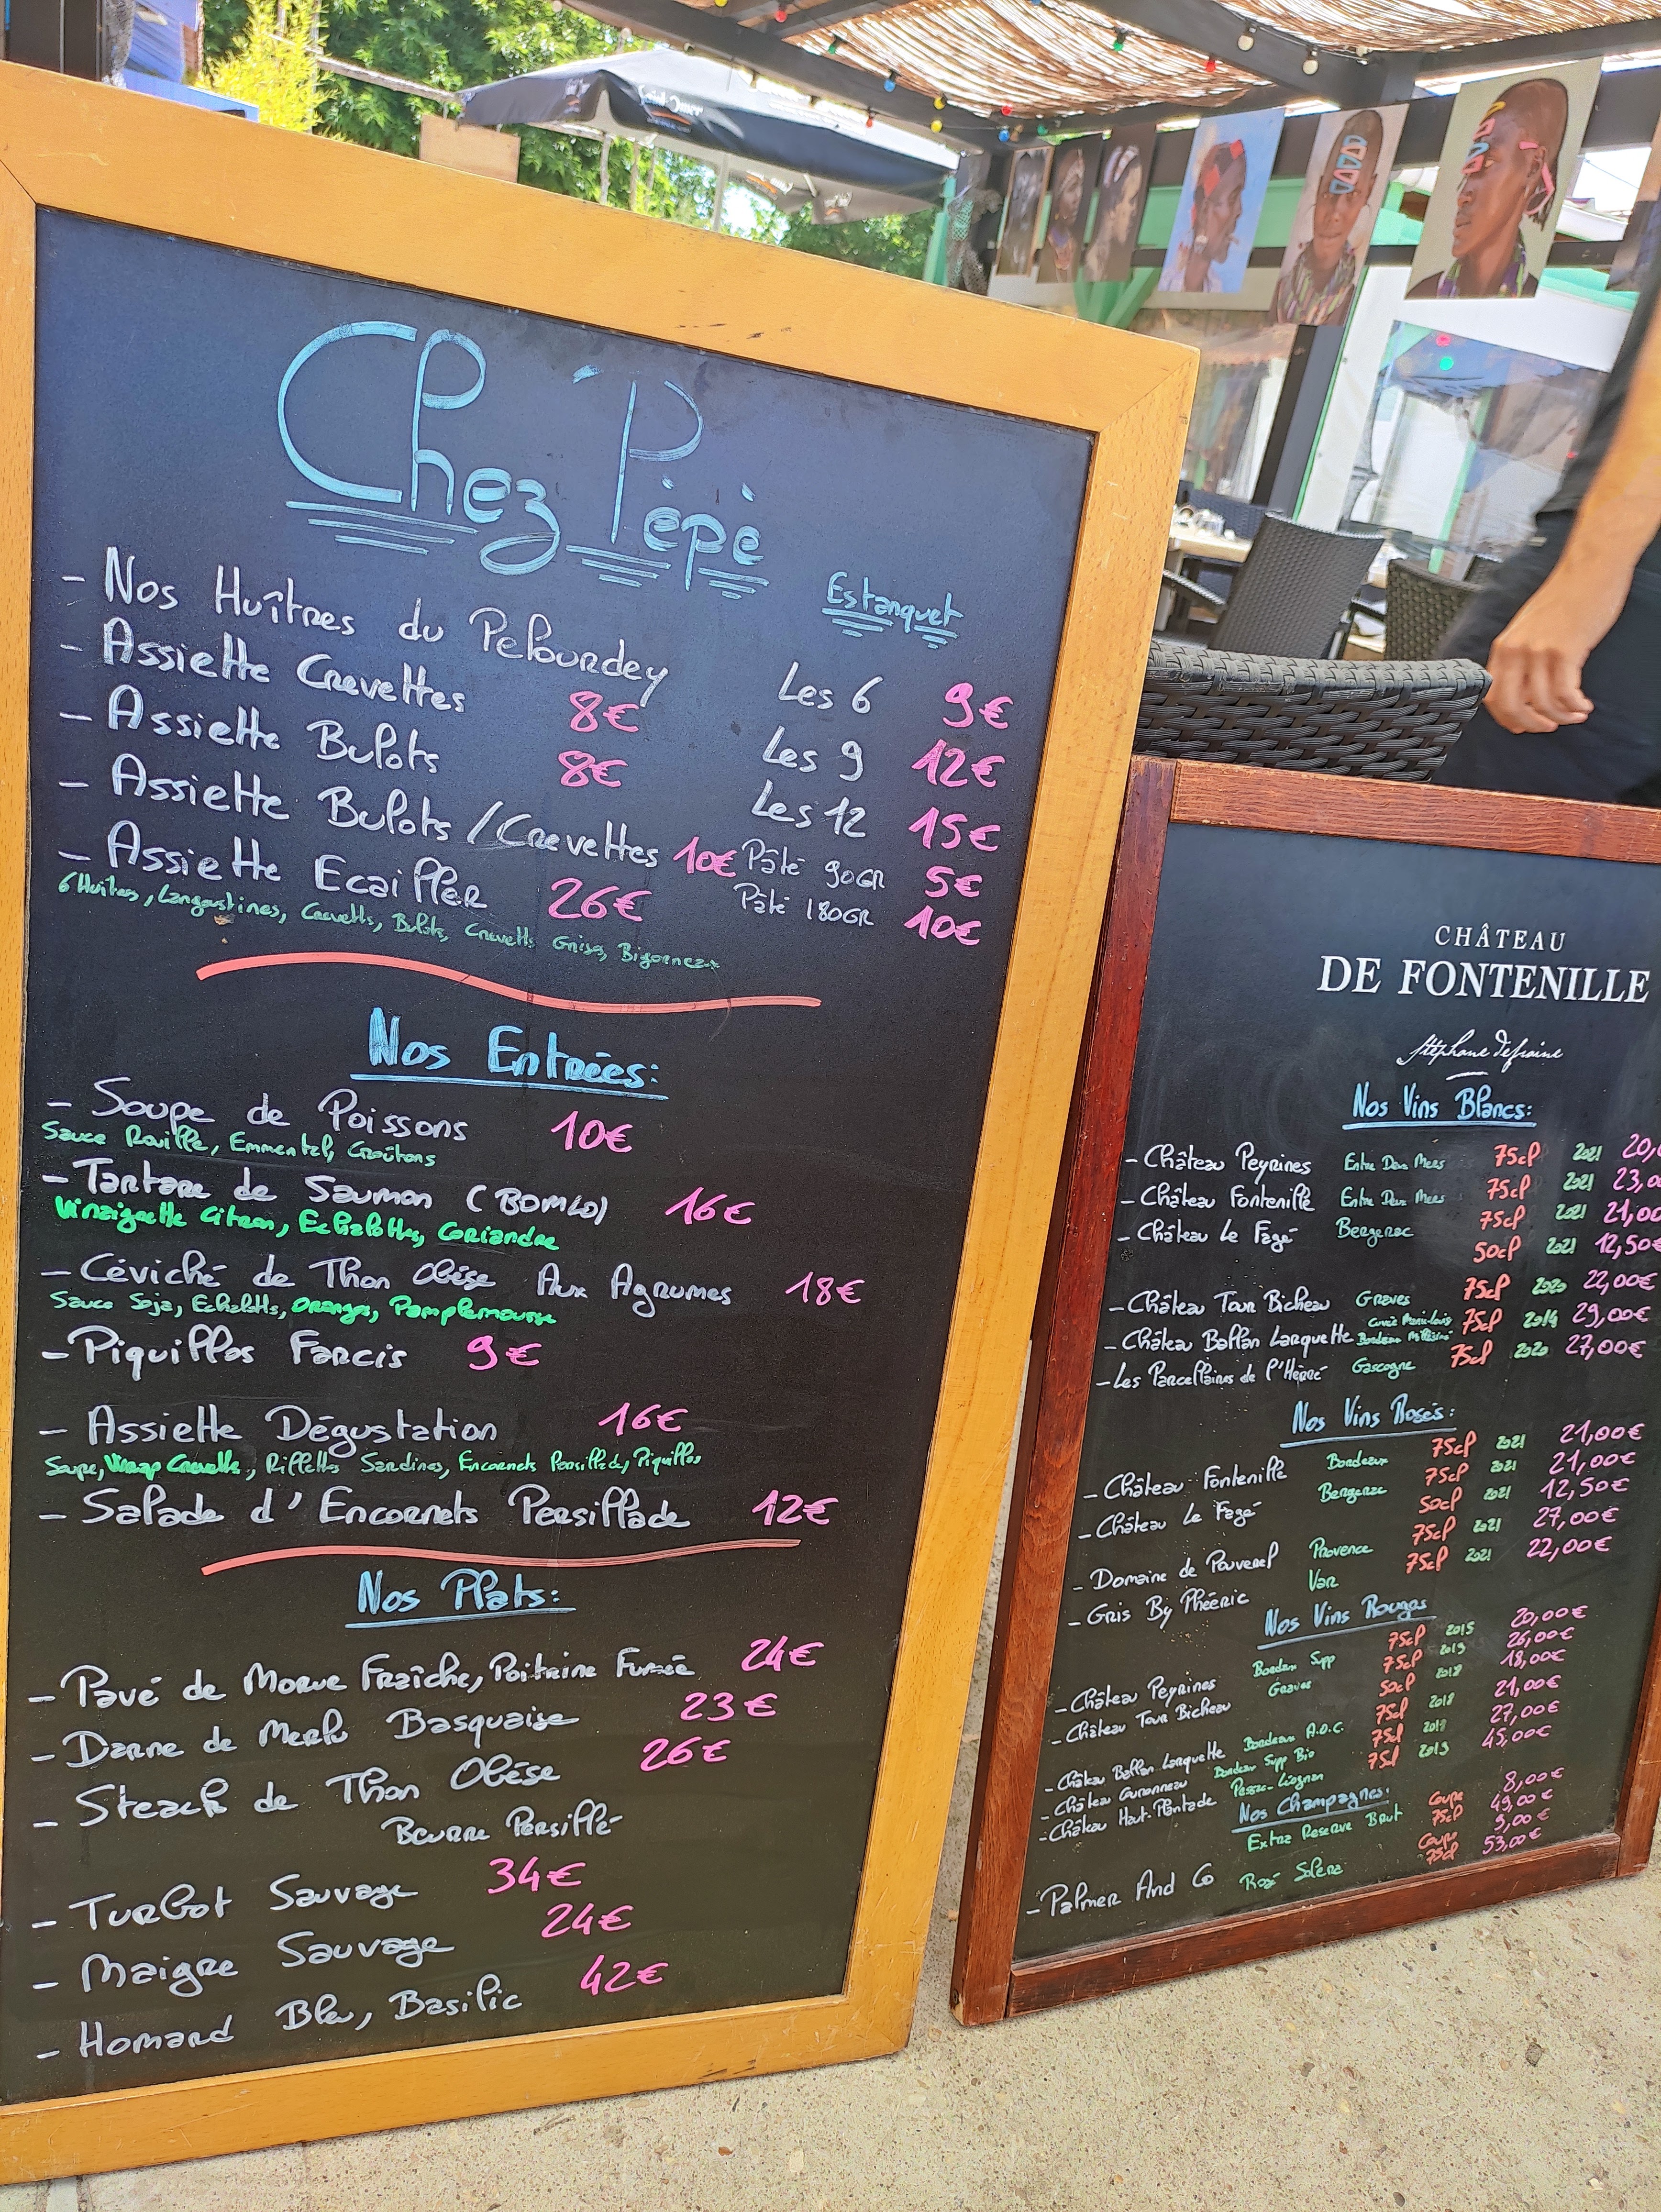 Chez Pépè
Estanquet
- Nos Huîtres du Pelourdey Les 6 9€
- Assiette Crevettes 8€ Les 9 12€
- Assiette Bulots 8€ Les 12 15€
- Assiette Bulots / Crevettes 10€ Pâté 90GR 5€
- Assiette Ecailler 26€ Pâté 180GR 10€
6 Huîtres, Langoustines, Crevettes, Bulots, Crevettes Grises, Bigorneaux
Nos Entrées:
- Soupe de Poissons 10€
Sauce Rouille, Emmental, Croûtons
- Tartare de Saumon (BOMLO) 16€
Vinaigrette Citron, Echalottes, Coriandre
- Céviché de Thon Obèse Aux Agrumes 18€
Sauce Soja, Echalotts, Oranges, Pamplemousse
- Piquillos Farcis 9€
- Assiette Dégustation 16€
Soupe, Wrap Crevette, Rillettes Sardines, Encornets Persillade, Piquillos
- Salade d'Encornets Persillade 12€
Nos Plats:
- Pavé de Morue Fraîche, Poitrine Fumée 24€
- Darne de Merlu Basquaise 23€
- Steack de Thon Obèse 26€
Beurre Persillé
- Turbot Sauvage 34€
- Maigre Sauvage 24€
- Homard Bleu, Basilic 42€
Saint Omer
CHÂTEAU
DE FONTENILLE
Stéphane Defraine
Nos Vins Blancs:
- Château Peyrines Entre Deux Mers 75cl 2021 20,
- Château Fontenille Entre Deux Mers 75cl 2021 23,0
- Château Le Fagé Bergerac 75cl 2021 21,00
50cl 2021 12,50€
- Château Tour Bicheau Graves 75cl 2020 22,00€
- Château Ballan Larquette Bordeaux 75cl 2014 29,00€
- Les Parcellaires de l'Hèrré Gascogne 75cl 2020 27,00€
Nos Vins Rosés:
- Château Fontenille Bordeaux 75cl 2021 21,00€
- Château Le Fagé Bergerac 75cl 2021 21,00€
50cl 2021 12,50€
- Domaine de Pouverel Provence 75cl 2021 27,00€
- Gris By Phééric Var 75cl 2021 22,00€
Nos Vins Rouges
- Château Peyrines Bordeaux Supp 75cl 2015 20,00€
- Château Tour Bicheau Graves 75cl 2019 26,00€
50cl 2018 18,00€
- Château Ballan Larquette Bordeaux A.O.C. 75cl 2018 21,00€
- Château Bordeaux Supp Bio 75cl 27,00€
- Château Haut-Plantade Pessac-Léognan 75cl 2013 45,00€
Nos Champagnes:
- Palmer And Co Extra Reserve Brut Coupe 8,00€
75cl 49,00€
Rosé Solera Coupe 9,00€
75cl 53,00€